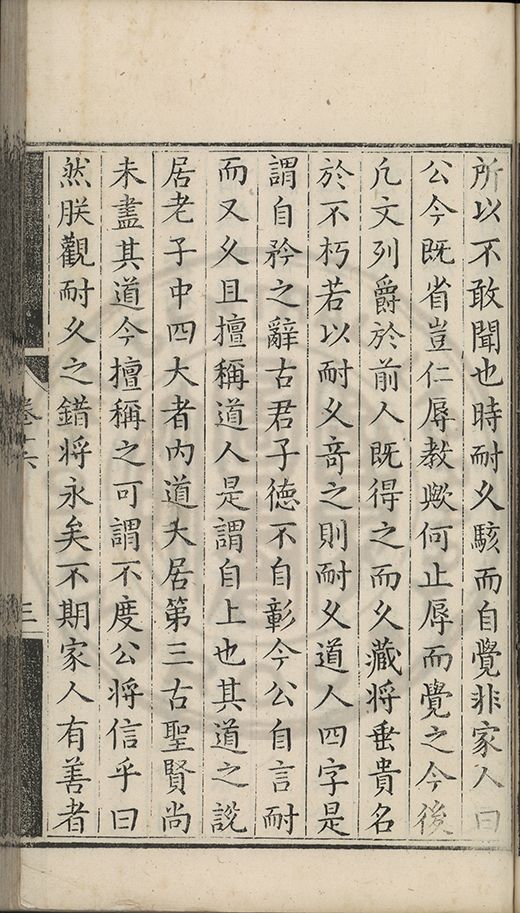 所以不敢聞也時耐久駭而自覺非家人曰
公今既省豈仁辱教歟何止辱而覺之今後
凡文列爵於前人既得之而久藏將垂貴名
於不朽若以耐久奇之則耐久道人四字是
謂自矜之辭古君子德不自彰今公自言耐
而又久且擅稱道人是謂自上也其道之說
居老子中四大者內道大居第三古聖賢尚
未盡其道今擅稱之可謂不度公將信乎曰
然朕觀耐久之錯將永矣不期家人有善者
卷十六
三